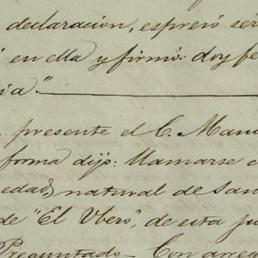 declaracion, espresó ser
en ella y firmó: doy fe
cia".
presente el C. Manu
forma dijo: llamarse c
edad, natural de San
de "El Vbero", de esta ju
Preguntado— Con arreg